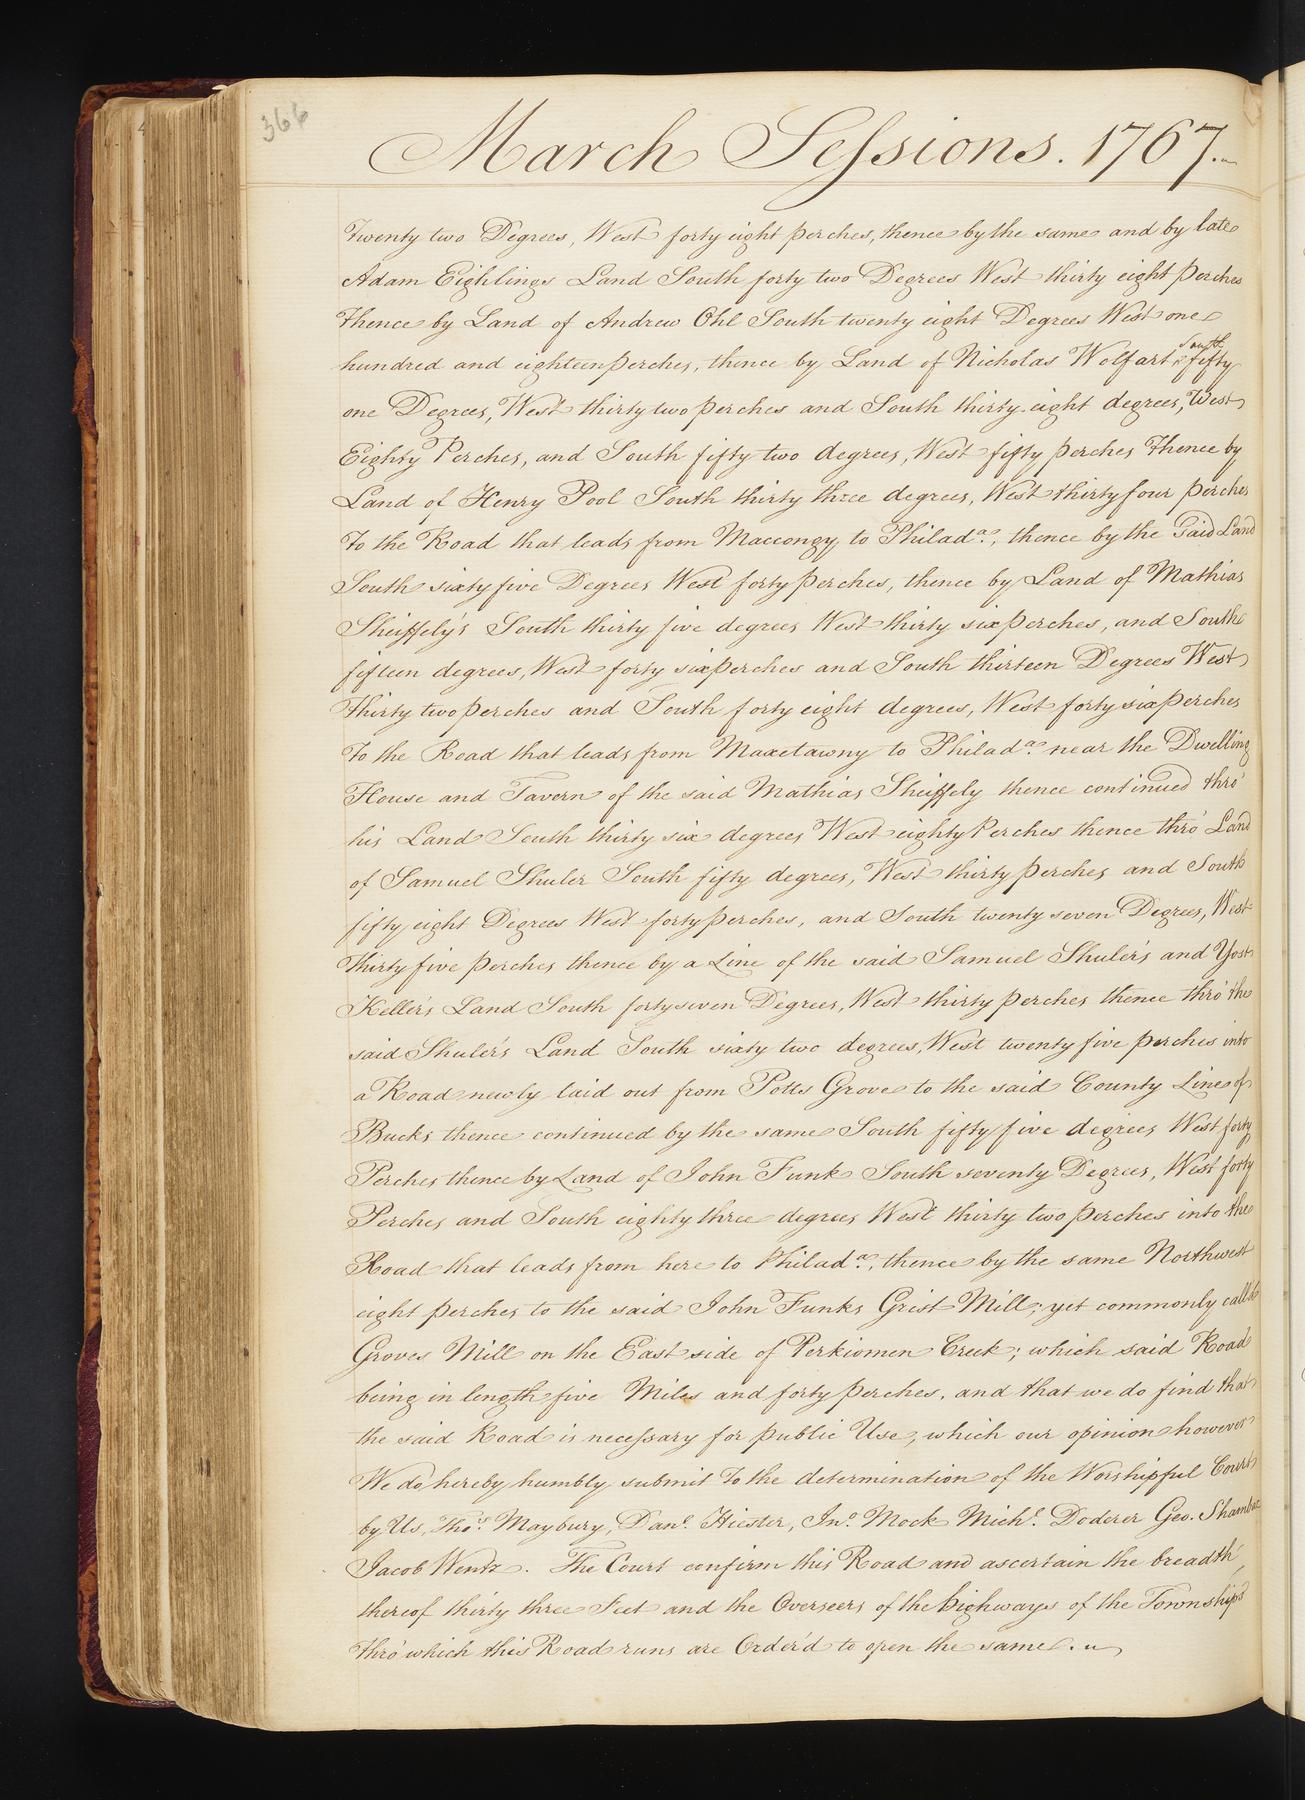 366
March Sessions. 1767.
Twenty two Degrees, West forty eight perches, thence by the same and by late
Adam Eighlings Land South forty two Degrees West thirty eight perches
Thence by Land of Andrew Ohl South twenty eight Degrees West one
hundred and eighteen perches, thence by Land of Nicholas Wolfart ^South fifty
one Degrees, West thirty two perches and South thirty eight degrees, West
Eighty Perches, and South fifty two degrees, West fifty perches Thence by
Land of Henry Pool South thirty three degrees, West thirty four perches
To the Road that leads from Maccongy to Philada., thence by the Said Land
South sixty five Degrees West forty perches, thence by Land of Mathias
Sheiffely's South thirty five degrees West thirty six perches, and South
fifteen degrees, West forty six perches and South thirteen Degrees West
Thirty two perches and South forty eight degrees, West forty six perches
To the Road that leads from Maxetawny to Philada. near the Dwelling
House and Tavern of the said Mathias Sheiffely thence continued thro'
his Land South thirty six degrees West eighty Perches thence thro' Land
of Samuel Shuler South fifty degrees, West thirty perches and South
fifty eight Degrees West forty perches, and South twenty seven Degrees, West
Thirty five perches thence by a Line of the said Samuel Shuler's and Yost
Keller's Land South forty seven Degrees, West thirty perches thence thro' the
said Shuler's Land South sixty two degrees, West twenty five perches into
a Road newly laid out from Potts Grove to the said County Line of
Bucks thence continued by the same South fifty five degrees West forty
Perches thence by Land of John Funk South seventy Degrees, West forty
Perches and South eighty three degrees West thirty two perches into the
Road that leads from here to Philada., thence by the same Northwest
eight perches to the said John Funks Grist Mill; yet commonly call'd
Groves Mill on the East side of Perkiomen Creek; which said Road
being in length five Miles and forty perches, and that we do find that
the said Road is necessary for public Use, which our opinion however
We do hereby humbly submit To the determination of the Worshipful Court
by Us, Thos. Maybury, Danl. Hiester, Jno. Mock Michl. Doderer Geo. Shambac
Jacob Wentz. The Court confirm this Road and ascertain the breadth
thereof thirty three Feet and the Overseers of the highways of the Townships
thro' which this Road runs are Order'd to open the same.